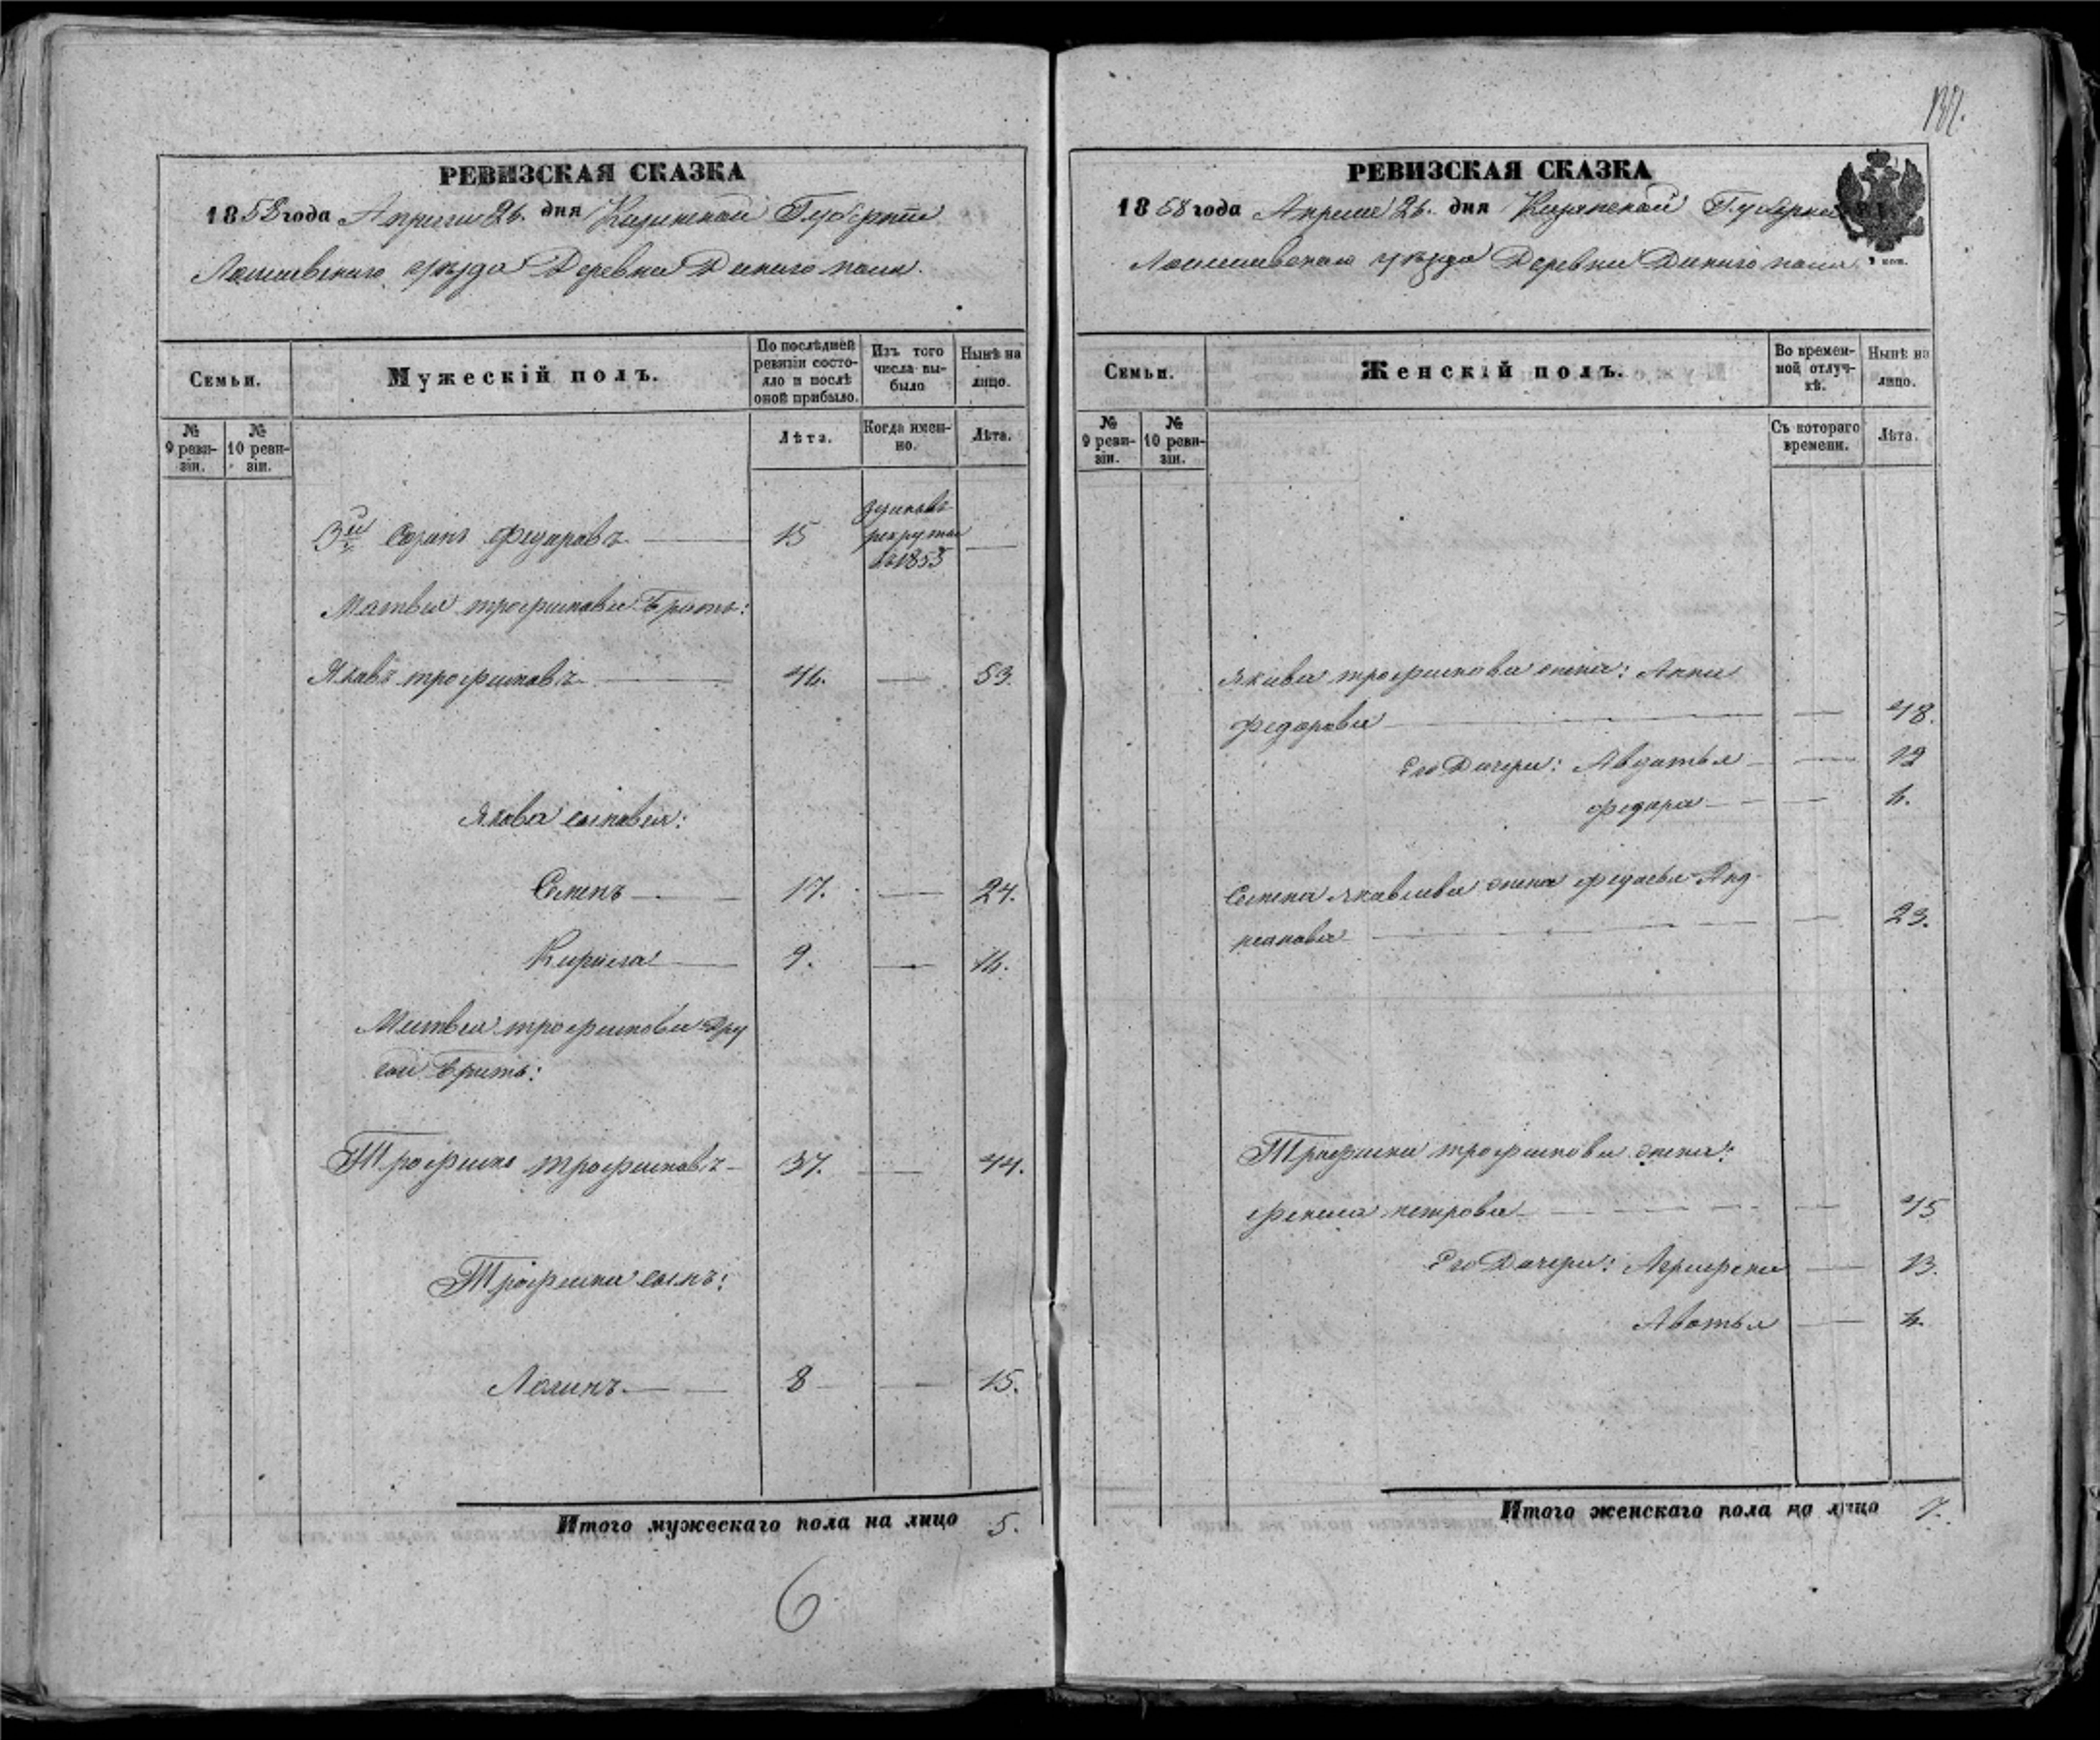 РЕВИЗСКАЯ СКАЗКА
1858 года Апреля 26. дня Казанской Губернии
Лаишевского уѣзда Деревни Дикого поля.
Семьи.
Мужескій полъ.
По послѣдней ревизіи состо-
яло и послѣ
оной прибыло.
Изъ того
числа вы-
было
Нынѣ на
лицо.
№
9 реви-
зіи.
№
10 реви-
зіи.
Лѣта.
Когда имен-
но.
Лѣта.
3й Федоровъ 15
рекруты
въ 1853
Матвея трофимова Братъ:
Яковъ трофимовъ 46. 53.
Якова сыновья:
Семенъ 17. 24.
Кирила 9. 16.
Матвея трофимова Дру
гой Братъ:
Трофимъ трофимовъ 37. 44.
Трофима сынъ:
Логинъ 8 15.
Итого мужескаго пола на лицо 5.
6
РЕВИЗСКАЯ СКАЗКА
1858 года Апреля 26. дня Казанской Губернии
Лаишевского уѣзда Деревни Дикого поля
Семьи.
Женскій полъ.
Во времен-
ной отлуч-
кѣ.
Нынѣ на
лицо.
№
9 реви-
зіи.
№
10 реви-
зіи.
Съ котораго
времени.
Лѣта.
Якова трофимова жена: Анна
Федорова 48.
Его Дочери: Авдотья 12
Федора 6.
Семена Яковлева жена Федосья Анд
реянова 23.
Трофима трофимова жена:
Фекла петрова 45
Его Дочери: Аграфена 13.
Авдотья 6.
Итого женскаго пола на лицо 7.